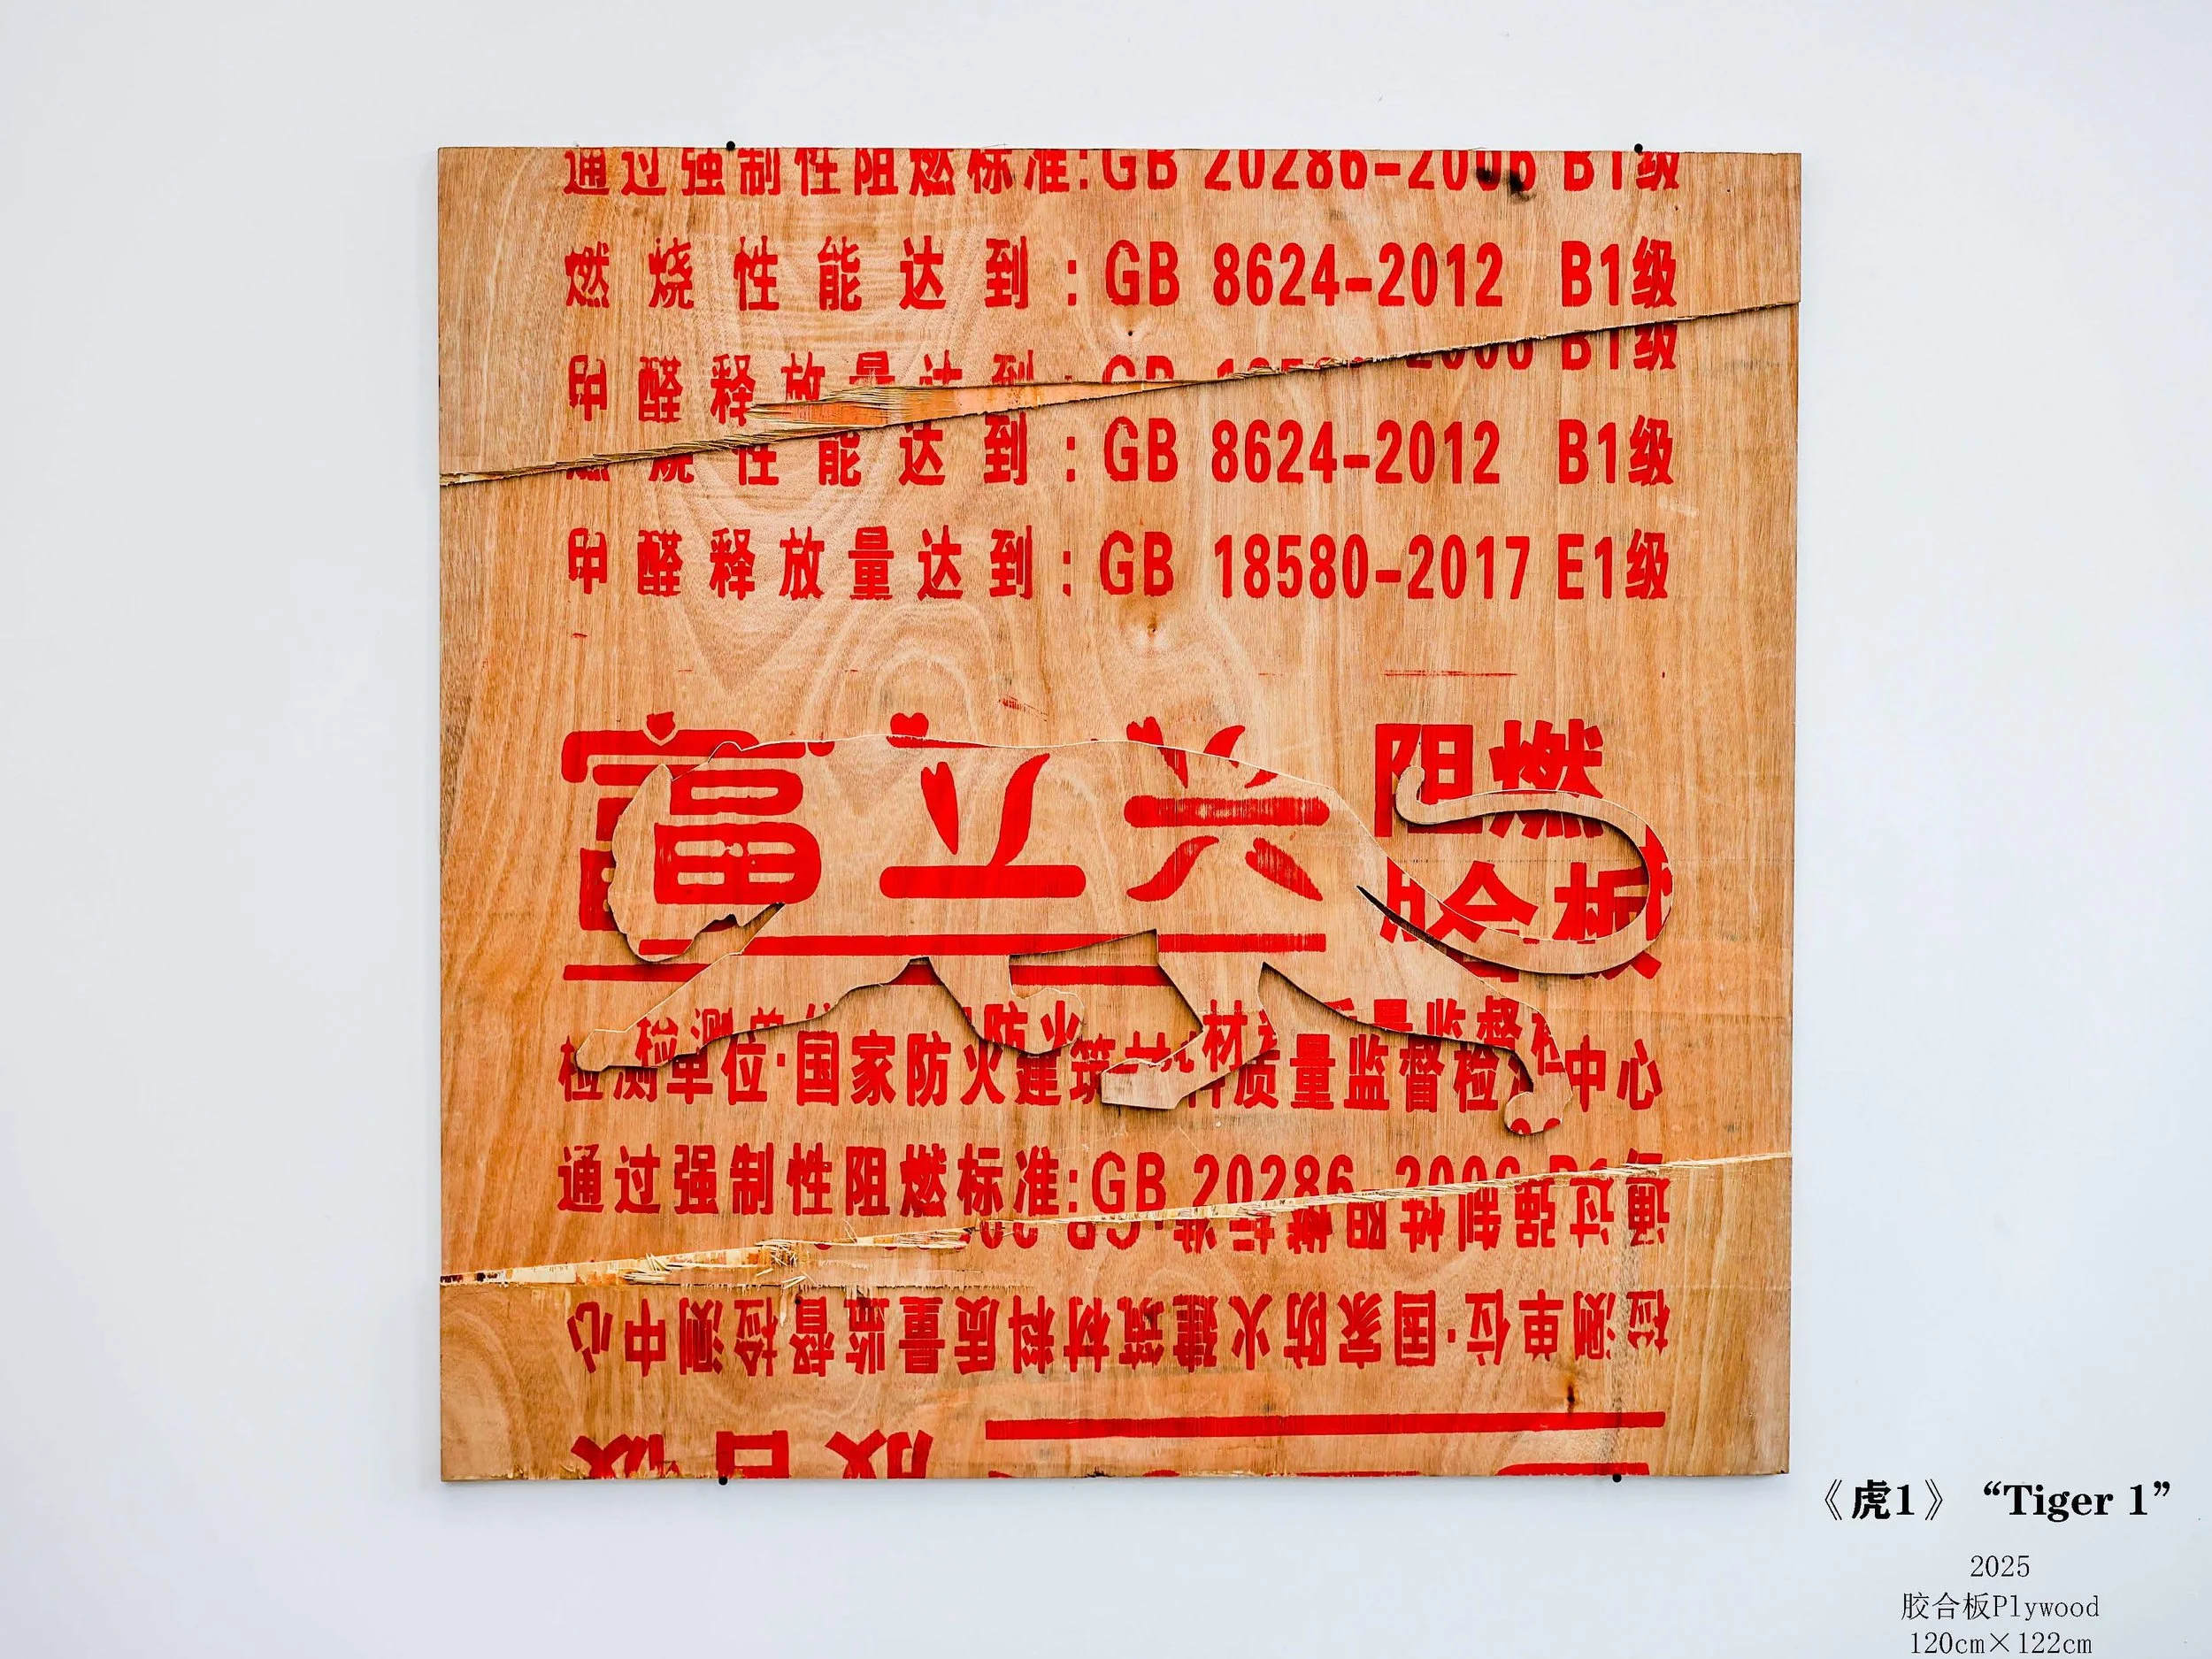 通过强制性阻燃标准:GB 20286-2006 B1级
燃烧性能达到:GB 8624-2012 B1级
甲醛释放量达到:GB
2006 B1级
燃烧性能达到:GB 8624-2012 B1级
甲醛释放量达到:GB 18580-2017 E1级
富立兴 阻燃
胶合板
检测单位·国家防火建筑材料质量监督检测中心
检测单位·国家防火建筑材料质量监督检测中心
通过强制性阻燃标准:GB 20286-2006 B1级
通过强制性阻燃标准:GB
检测单位·国家防火建筑材料质量监督检测中心
胶合板
《虎1》 “Tiger 1”
2025
胶合板Plywood
120cm×122cm